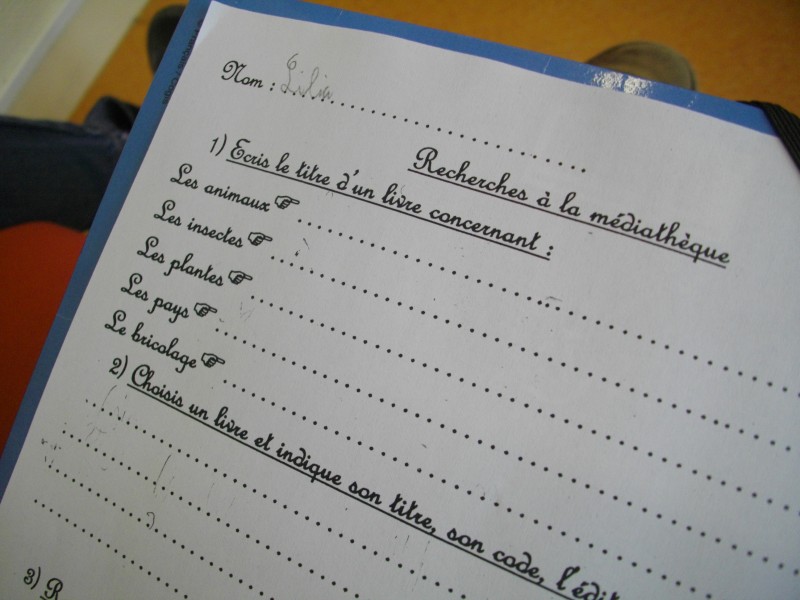 Nom : Lilia
Recherches à la médiathèque
1) Ecris le titre d'un livre concernant :
Les animaux ☞
Les insectes ☞
Les plantes ☞
Les pays ☞
Le bricolage ☞
2) Choisis un livre et indique son titre, son code, l'édit
3) R